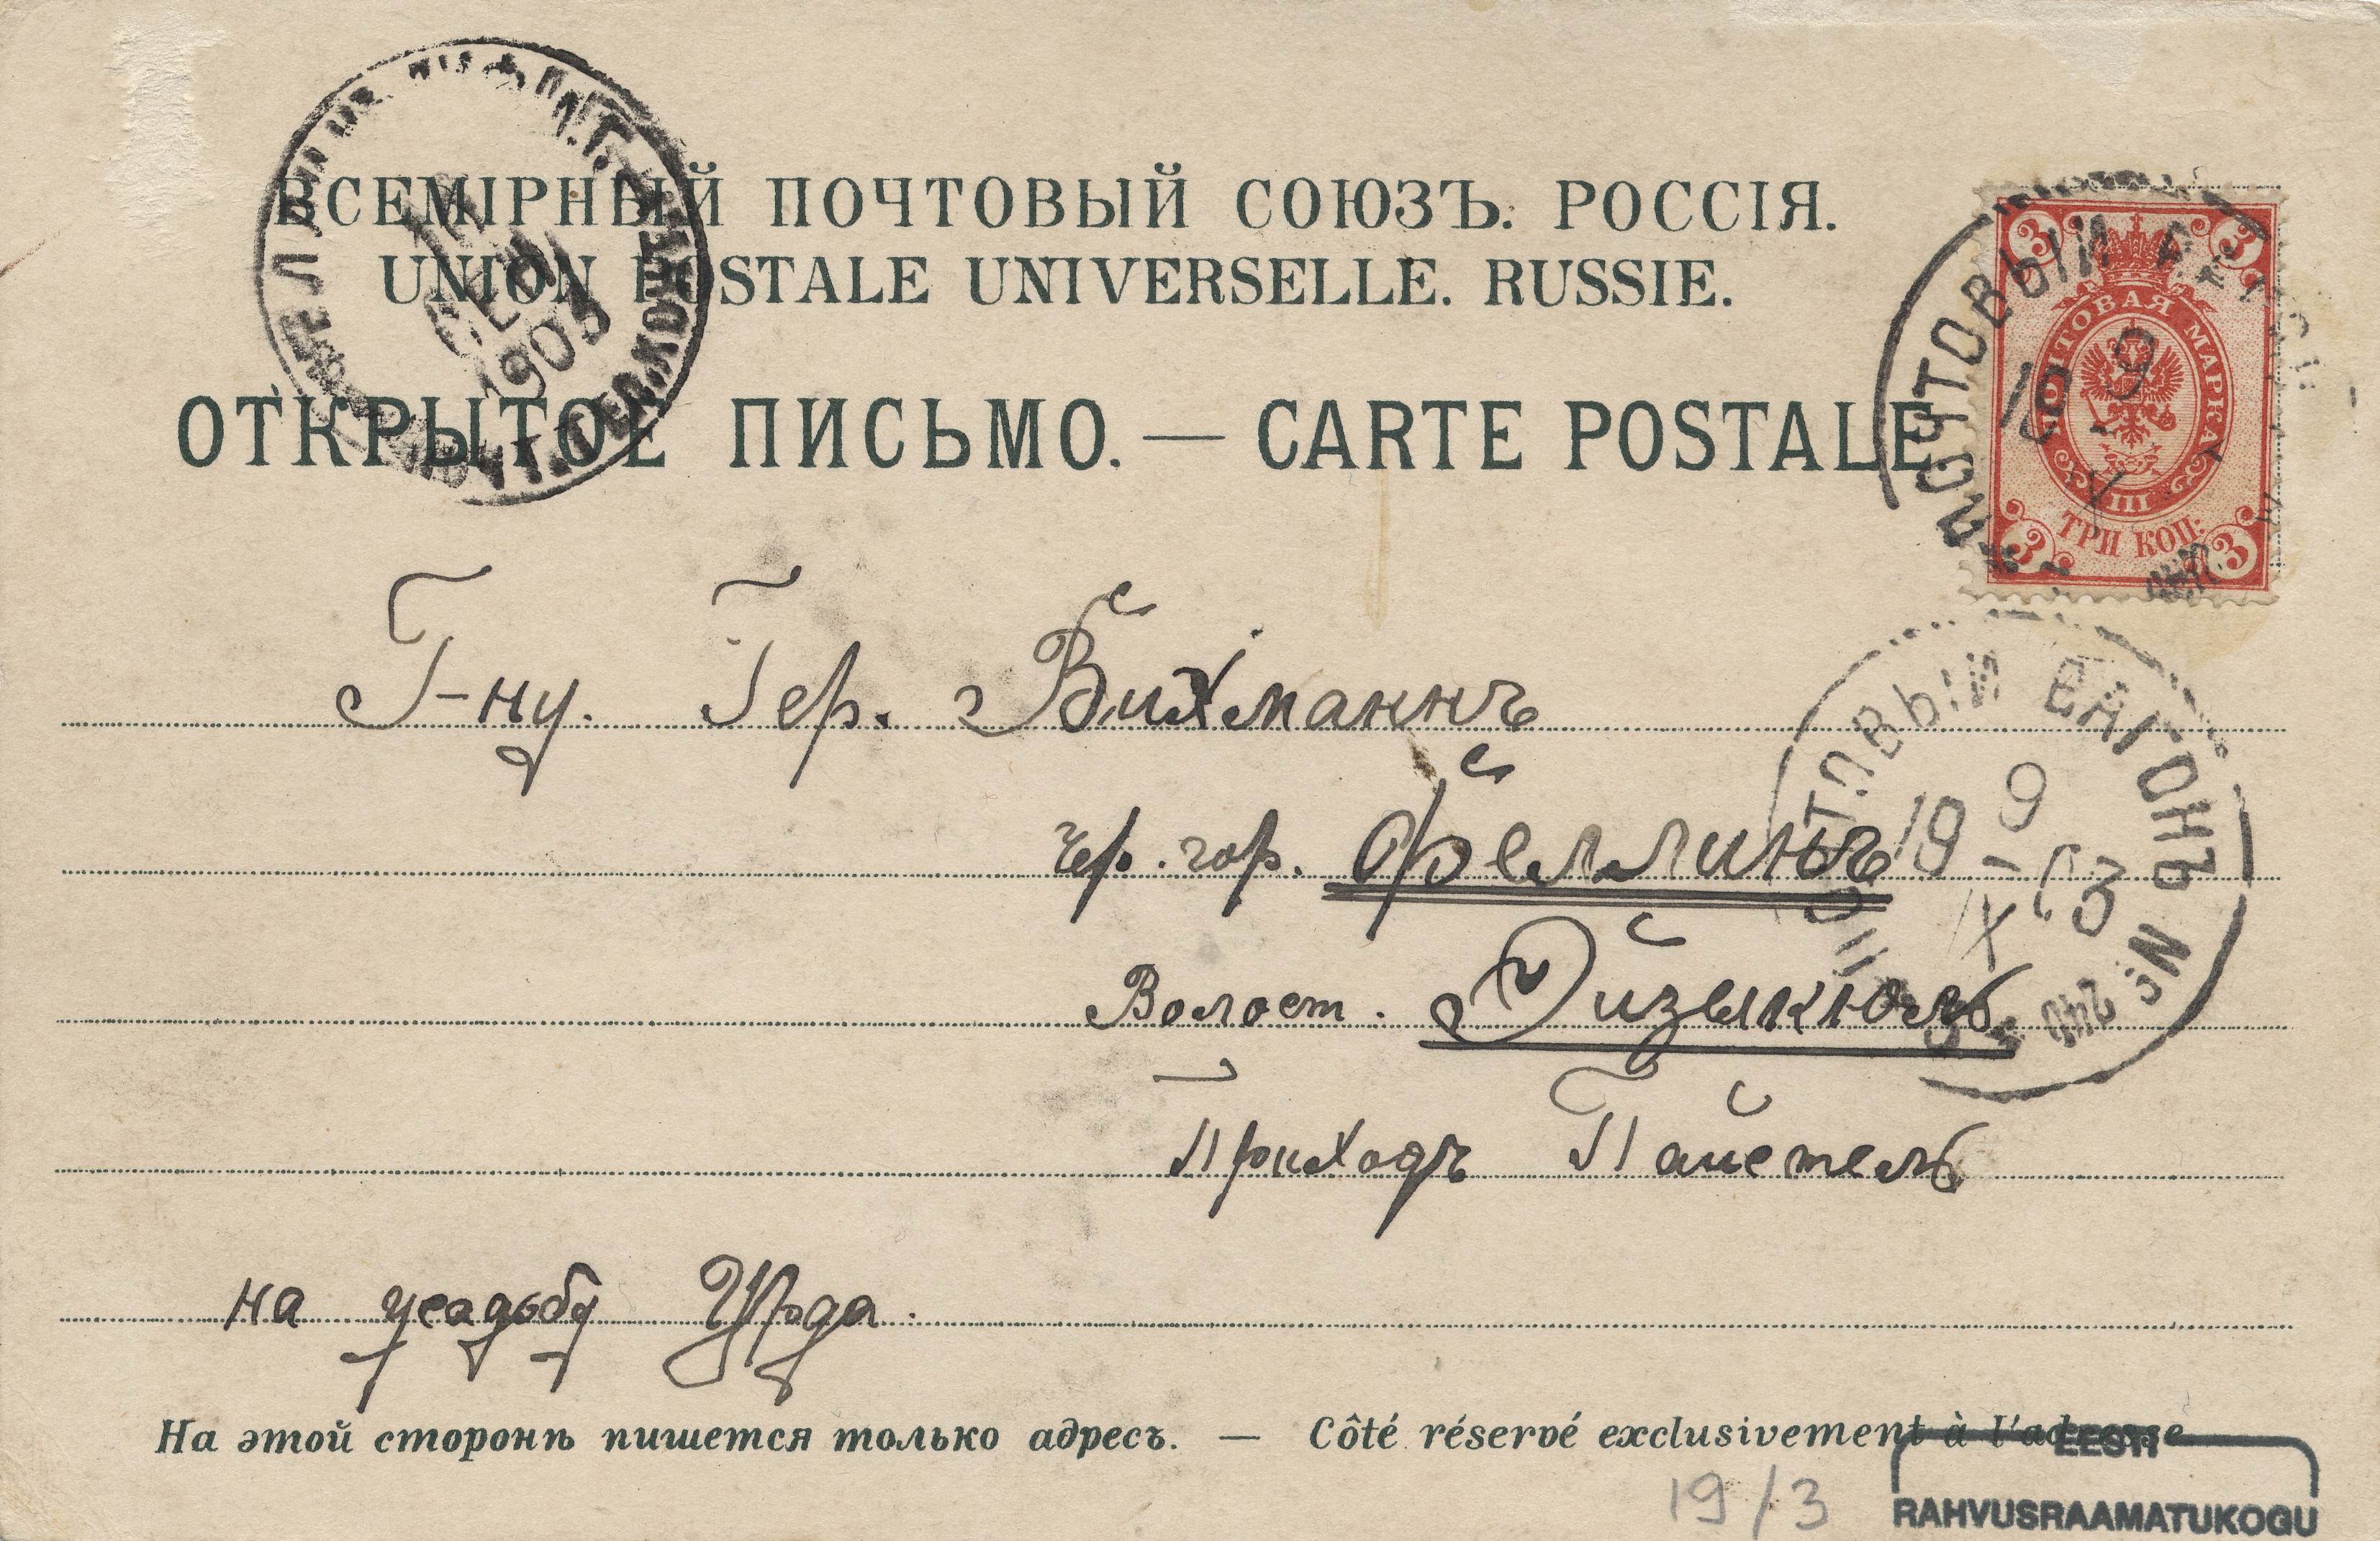 ВСЕМІРНЫЙ ПОЧТОВЫЙ СОЮЗЪ. РОССІЯ.
UNION POSTALE UNIVERSELLE. RUSSIE.
ОТКРЫТОЕ ПИСЬМО. — CARTE POSTALE
ПОЧТОВАЯ МАРКА
ТРИ КОП.
3 3 3 3
ПОЧТОВЫЙ
19 9 X
1903
Г-ну. Гер. Вихманнъ
чер. гор. Феллинъ
ПОЧТОВЫЙ ВАГОНЪ №
19 9 IX 03
Волост. Эйзекюль
Приходъ Пайстель
на усадьбу
На этой сторонѣ пишется только адресъ. — Côté réservé exclusivement à l'adresse
19/3
EESTI
RAHVUSRAAMATUKOGU